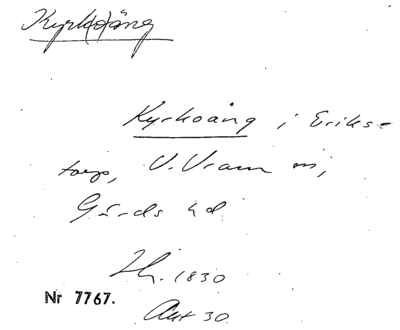 Kyrk(o)äng
Kyrkoäng i Eriks-
torp, V. Vram sn,
Gärds hd
1830
Nr 7767.
Akt 30